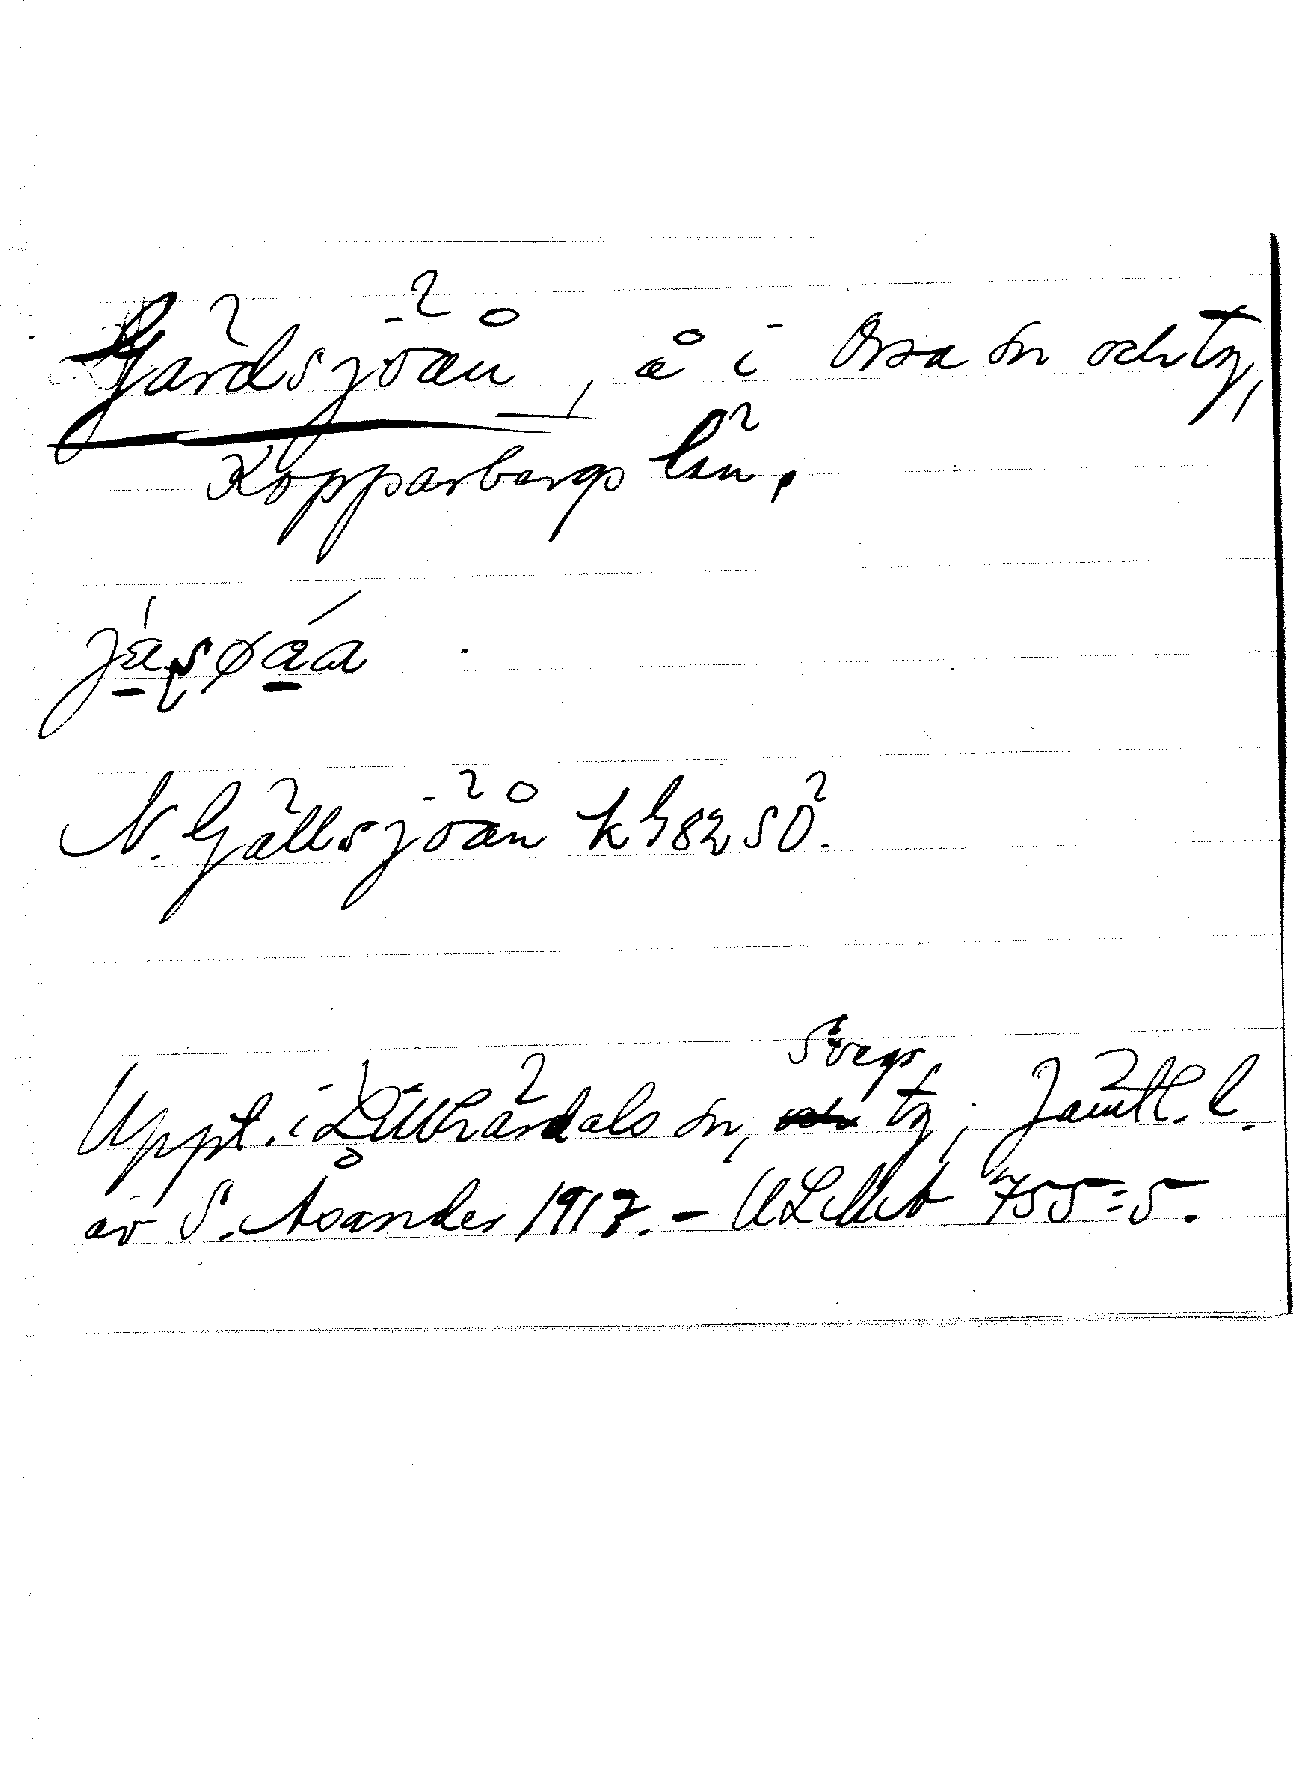 Gärdsjöån, å i Orsa sn och tg,
Kopparbergs län.
N. Gällsjöån k G82 SÖ.
Svegs
Uppt. i Lillhärdals sn, tg, Jämtl. l.
av S. Åsander 1917. – ULMA 755:5.